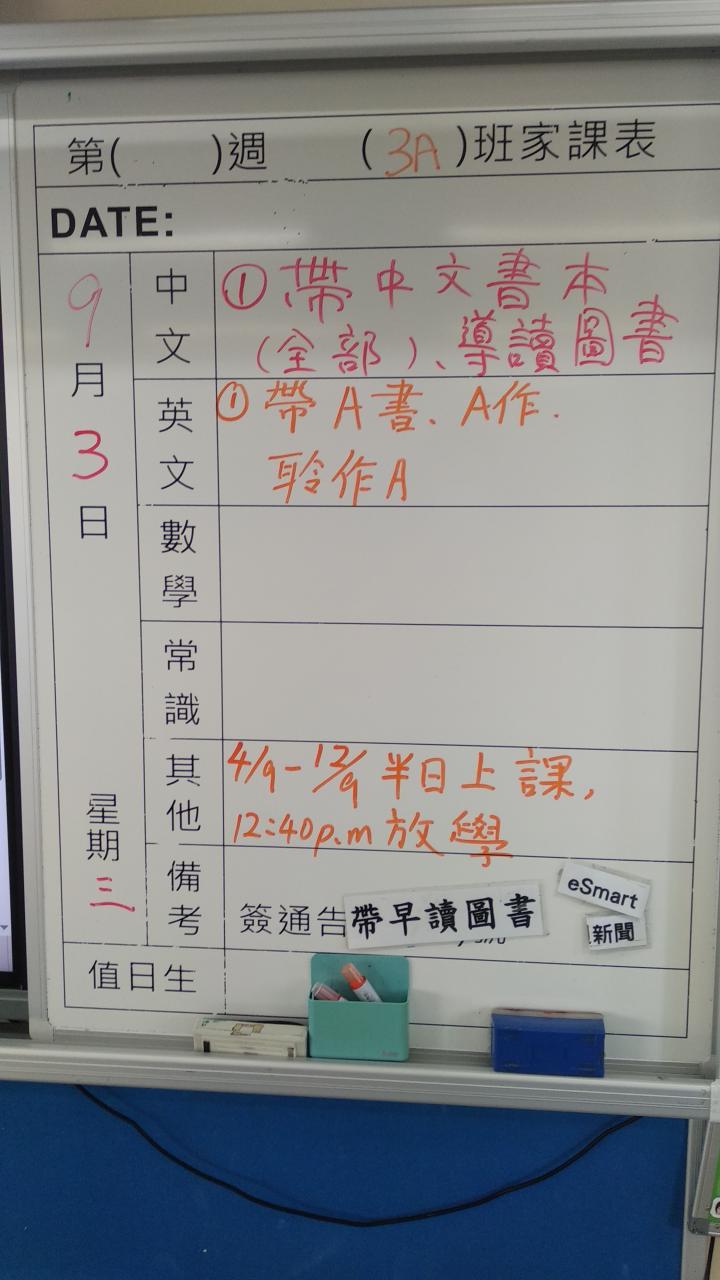 第( )週 (3A)班家課表
DATE:
9月3日
星期三
中文
①帶中文書本
(全部)、導讀圖書
英文
①帶A書、A作.
聆作A
數學
常識
其他
4/9-12/9半日上課,
12:40p.m放學
備考
簽通告帶早讀圖書
eSmart
新聞
值日生